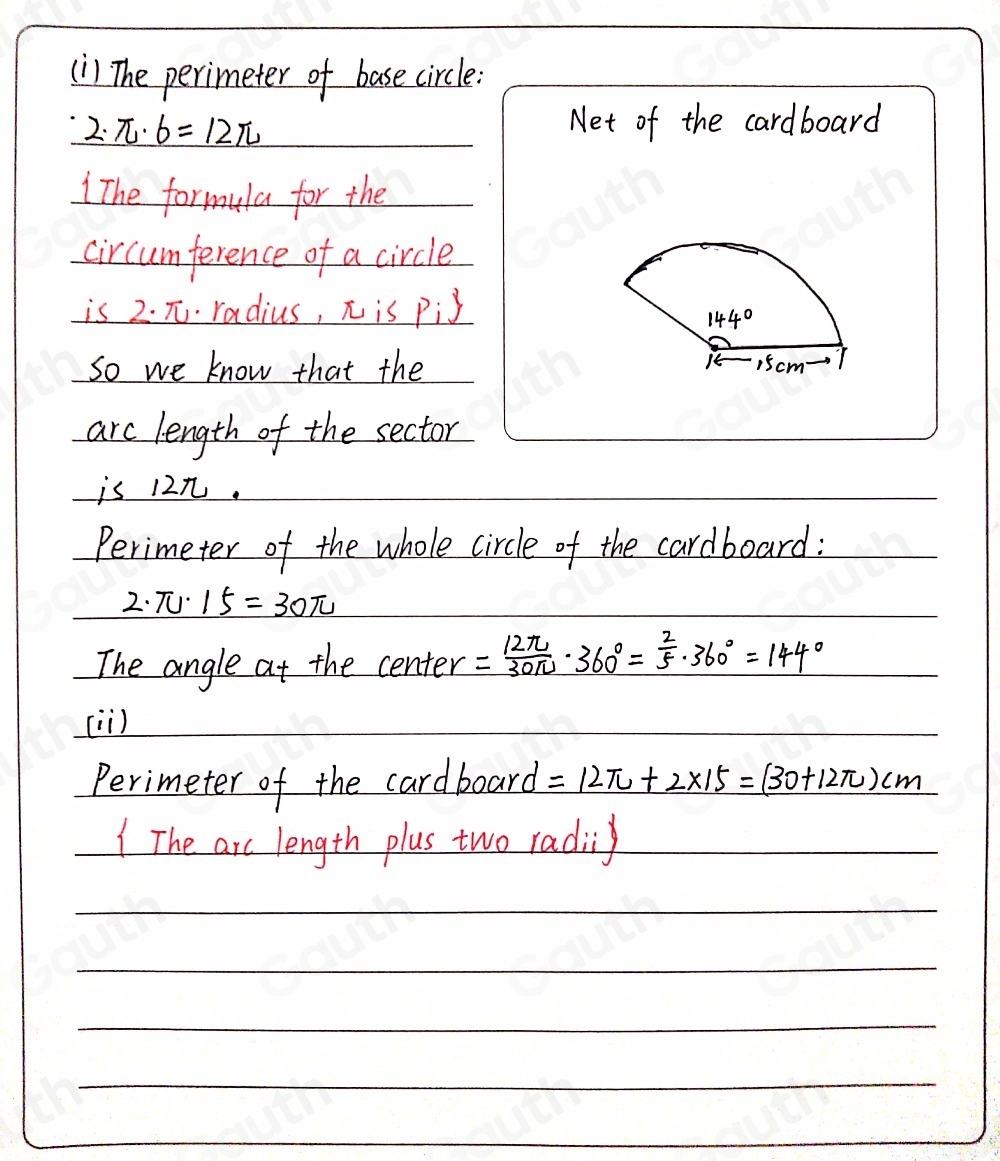 (i) The perimeter of base circle:
2·π·6=12π
{The formula for the
circumference of a circle
is 2·π·radius, π is Pi}
so we know that the
arc length of the sector
is 12π.
Net of the cardboard
144°
15cm
Perimeter of the whole circle of the cardboard:
2·π·15=30π
The angle at the center = 12π/30π ·360° = 2/5 ·360° = 144°
(ii)
Perimeter of the cardboard = 12π + 2×15 = (30+12π)cm
{ The arc length plus two radii}
Gauth